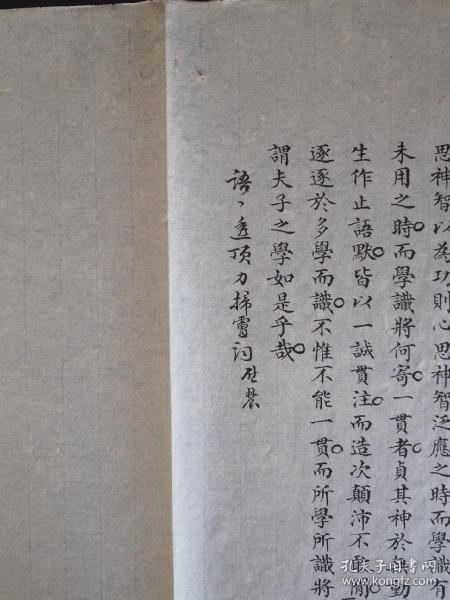 思神智以為功則心思神智泛應之時而學識有
未用之時而學識將何寄一貫者貞其神於無動
生作止語默皆以一誠貫注而造次顛沛不敢間
逐逐於多學而識不惟不能一貫而所學所識將
謂夫子之學如是乎哉
語丶透頂力掃膚詞
孔夫子旧书网